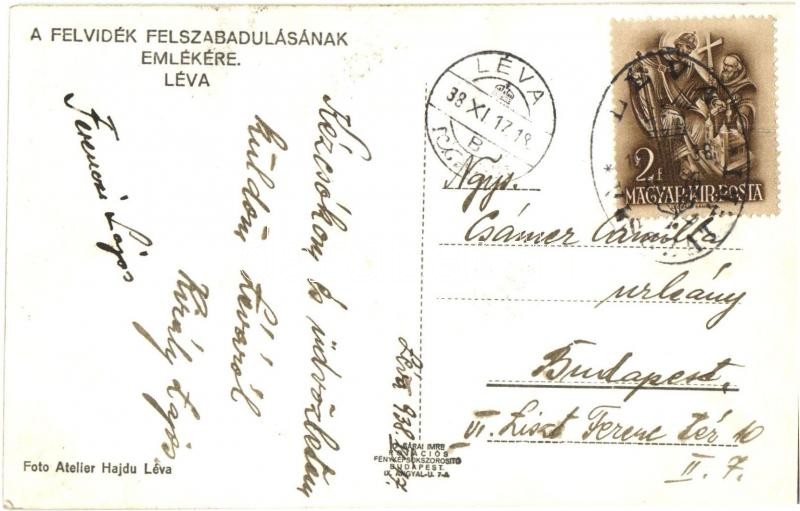 A FELVIDÉK FELSZABADULÁSÁNAK
EMLÉKÉRE.
LÉVA
LÉVA
38 XI 17.18
B
2F
MAGYAR·KIR·POSTA
Ferenczi Lajos
Kézcsókom és üdvözletem
küldöm Léváról
Király Lajos
Léva 938.
Ngys.
Csámer Camilla
urleány
Budapest,
VI. Liszt Ferenc tér 10
II. 7.
GÁRAI IMRE
ROTÁCIÓS
FÉNYKÉPSOKSZOROSÍTÓ
BUDAPEST.
IX. ANGYAL-U. 7-A
Foto Atelier Hajdu Léva